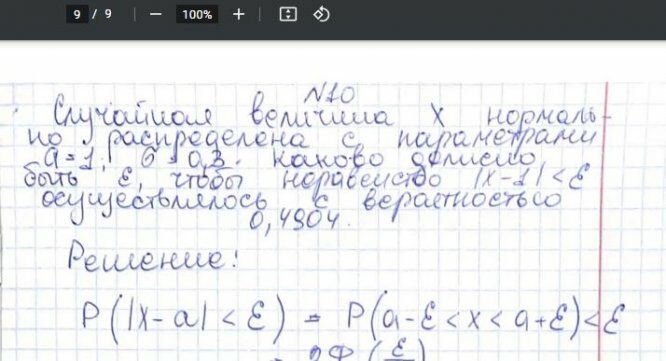 9 / 9 100%
N10
Случайная величина X нормаль-
но распределена с параметрами
a=1, б=0,3. Каково должно
быть ε, чтобы неравенство |x-1|<ε
осуществлялось с вероятностью
0,4904.
Решение:
P(|x-a|<ε) = P(a-ε<x<a+ε)<ε
= 2Ф(ε